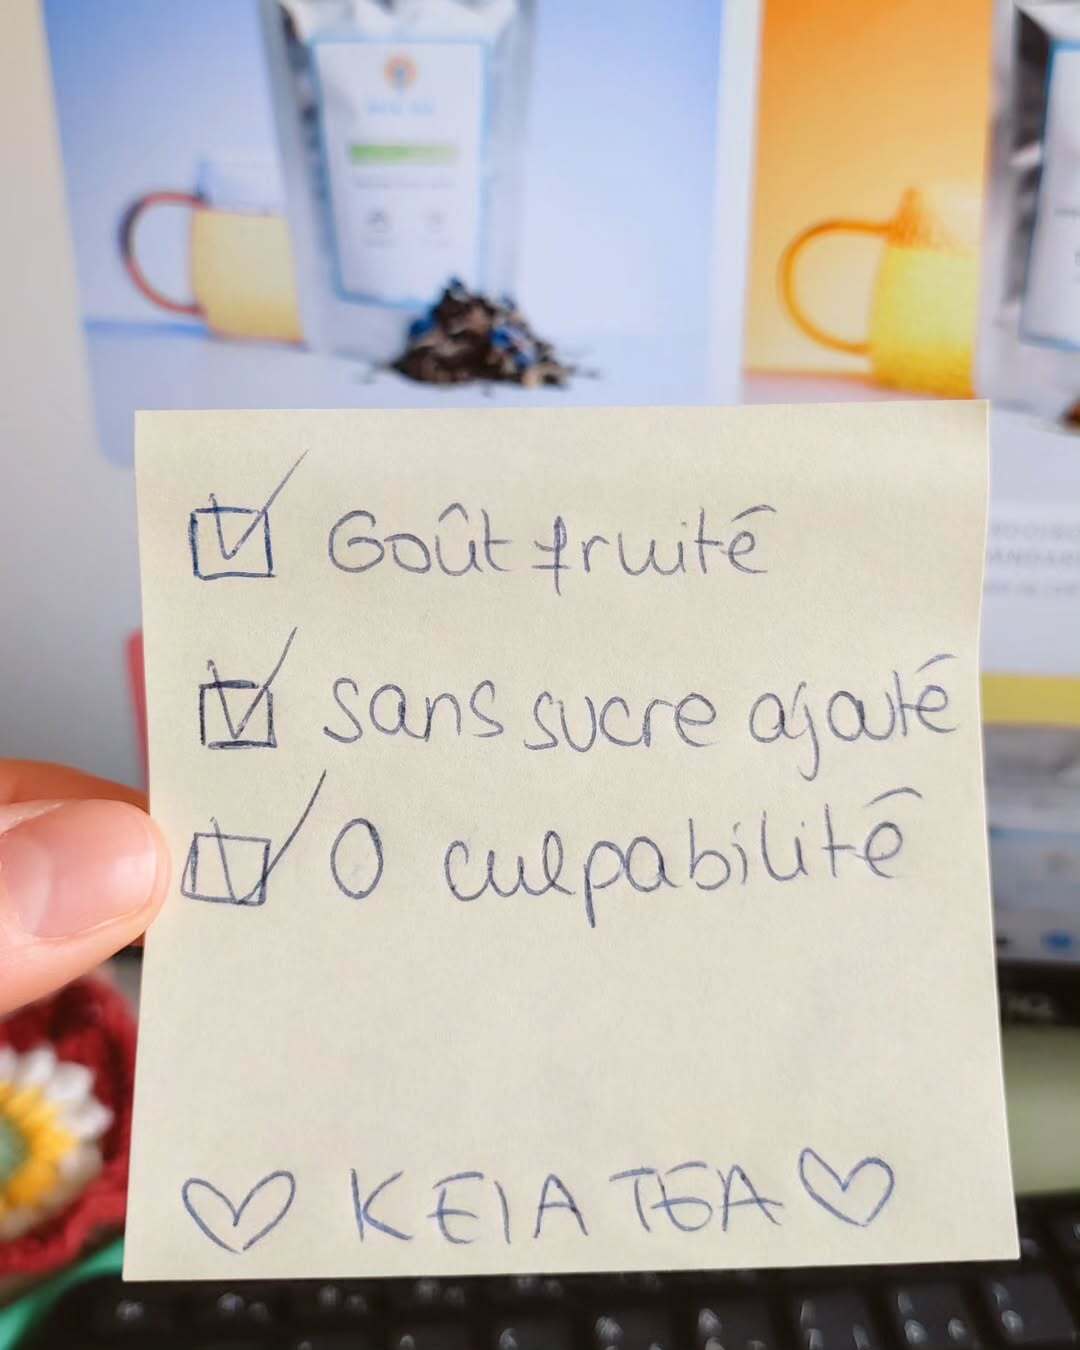 Goût fruité
sans sucre ajouté
0 culpabilité
KEIA TEA